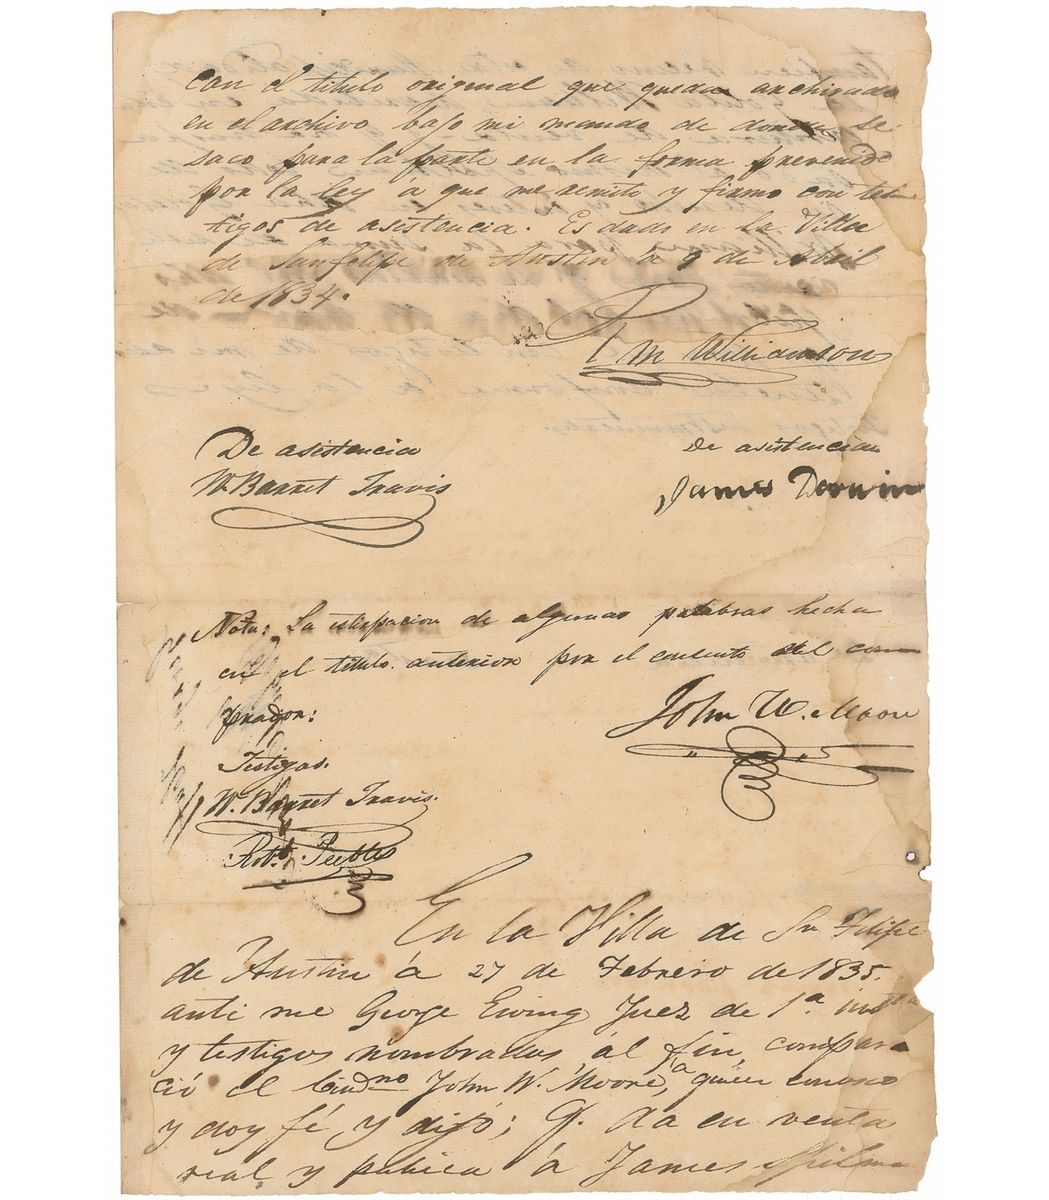 con el titulo original que queda archivado
en el archivo bajo mi mando de donde se
saco para la parte en la forma prevenida
por la ley a que me remito y firmo con tes
tigos de asistencia. Es dada en la Villa
de Sanfelipe de Austin a 9 de Abril
de 1834.
R M Williamson
De asistencia
De asistencia
W. Barret Travis
James
Nota: La de algunas palabras hecha
en el titulo anterior por el consento del com
prador:
John W. Moore
Testigos.
W. Barret Travis.
Robt. Peebles
En la Villa de Sn Felipe
de Austin á 27 de Febrero de 1835.
anti me George Ewing Juez de 1.a insta
y testigos nombrados al fin, compare
ció el Ciudno John W. Moore, a quien conosco
y doy fé y dijó; q. da en venta
real y publica á James